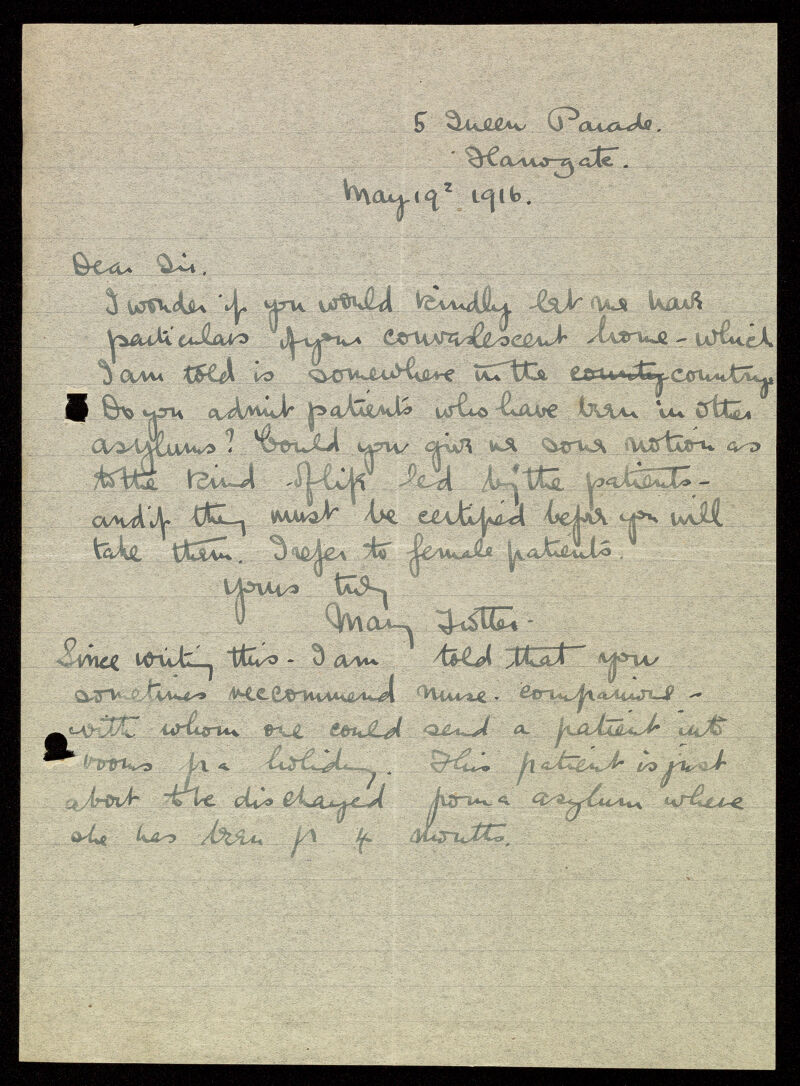 5 Queen Parade.
Harrogate.
May 19² 1916.
Dear Sir.
I wonder if you would kindly let me have
particulars of your convalescent home - which
I am told is somewhere in the county country.
Do you admit patients who have been in other
asylums? Could you give me some notion as
to the kind of life led by the patients -
and if they must be certified before you will
take them. I refer to female patients.
Yours truly
Mary Trotter.
Since writing this - I am told that you
sometimes reccommend nurse. companions -
with whom one could send a patient into
rooms for a holiday. This patient is just
about to be discharged from a asylum where
she has been for 4 months.